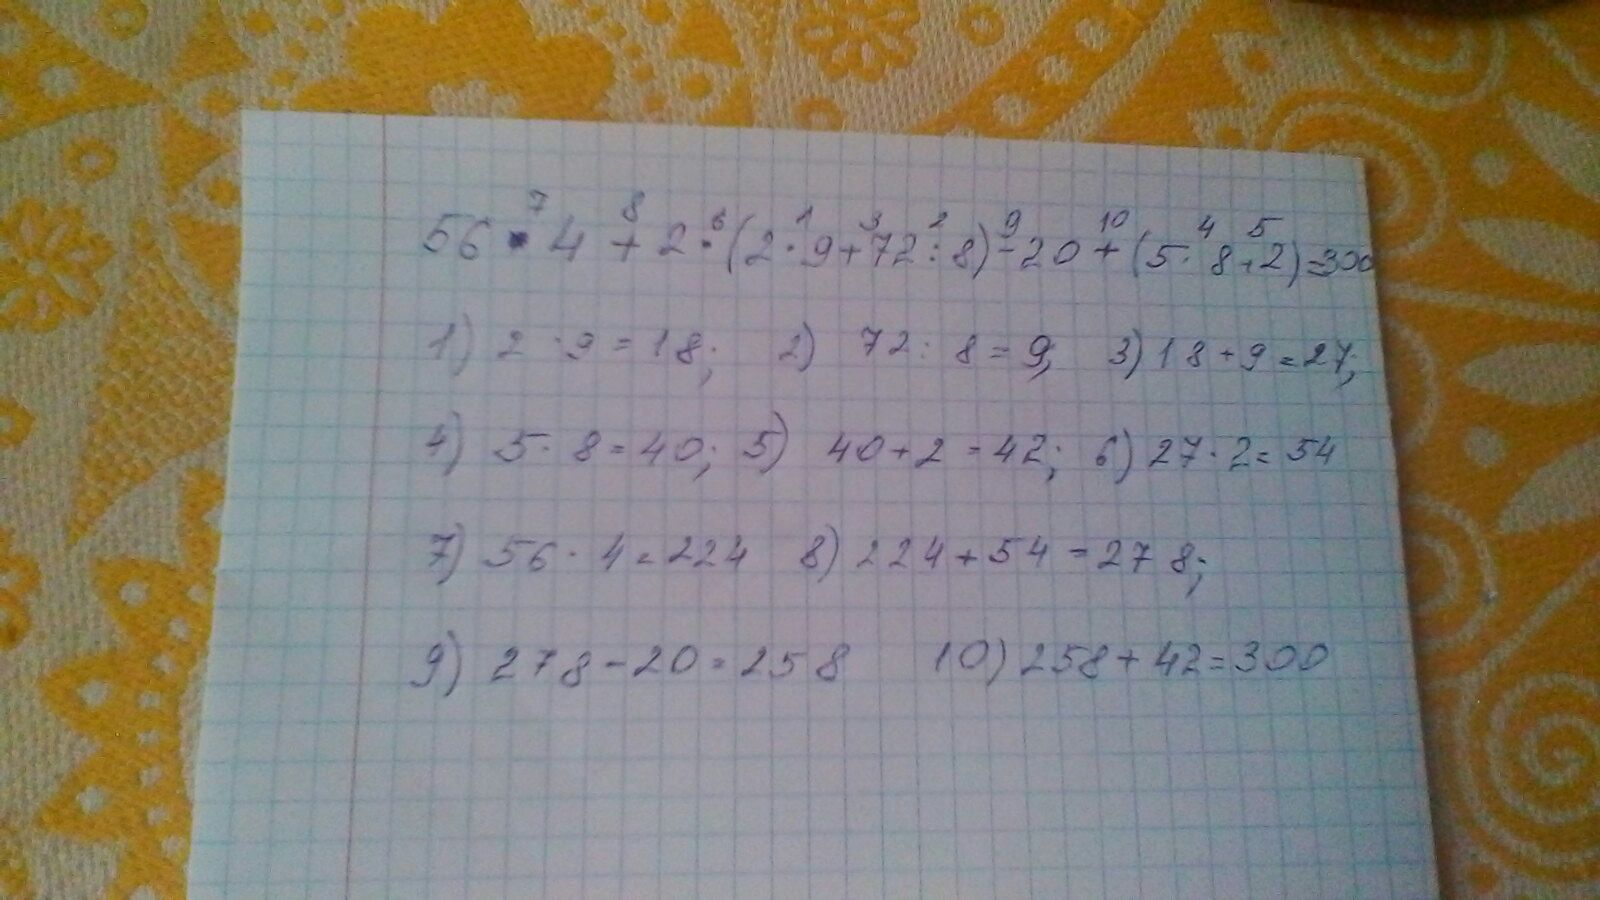 7 8 6 1 3 2 9 10 4 5
56 · 4 + 2 · (2 · 9 + 72 : 8) - 20 + (5 · 8 + 2) = 300
1) 2 · 9 = 18; 2) 72 : 8 = 9; 3) 18 + 9 = 27;
4) 5 · 8 = 40; 5) 40 + 2 = 42; 6) 27 · 2 = 54
7) 56 · 4 = 224 8) 224 + 54 = 278;
9) 278 - 20 = 258 10) 258 + 42 = 300